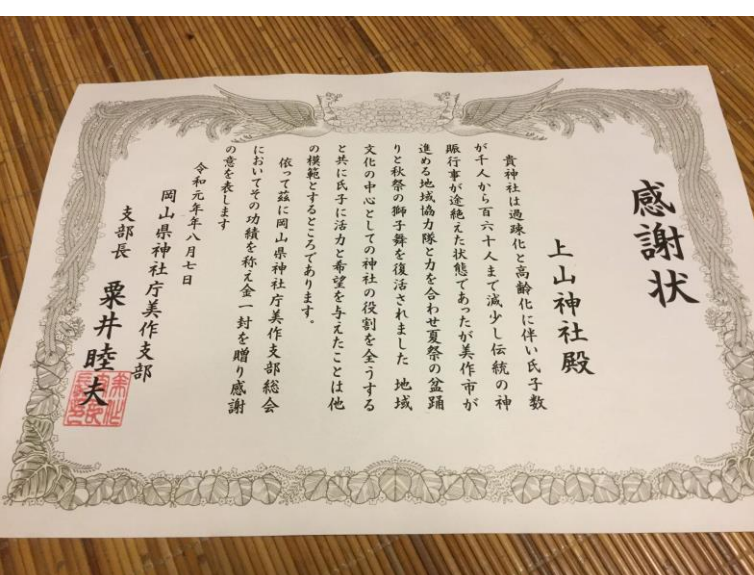 感謝状
上山神社殿
貴神社は過疎化と高齢化に伴い氏子数
が千人から百六十人まで減少し伝統の神
賑行事が途絶えた状態であったが美作市が
進める地域協力隊と力を合わせ夏祭の盆踊
りと秋祭の獅子舞を復活されました 地域
文化の中心としての神社の役割を全うする
と共に氏子に活力と希望を与えたことは他
の模範とするところであります。
依って茲に岡山県神社庁美作支部総会
においてその功績を称え金一封を贈り感謝
の意を表します
令和元年八月七日
岡山県神社庁美作支部
支部長 粟井睦夫